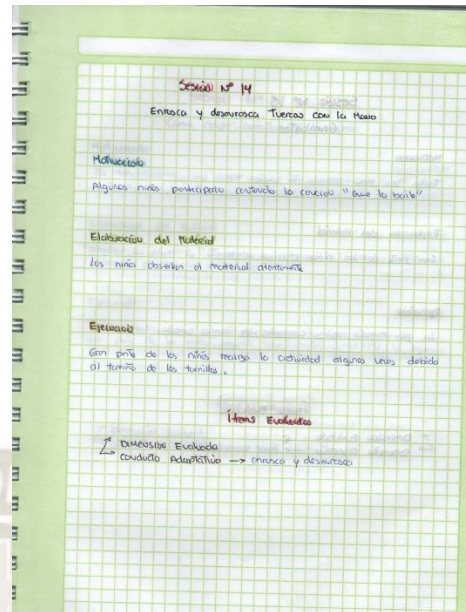 Sesión Nº 14
Enrosca y desenrosca Tuercas con la Mano
Motivación
Algunos niños participaron cantando la canción "Que lo baile"
Elaboración del Material
Los niños observan el material atentamente
Ejecución
Gran parte de los niños realiza la actividad algunas veces debido
al tamaño de los tornillos.
Ítems Evaluados
Dimensión Evaluada
Conducta Adaptativa → enrosca y desenrosca